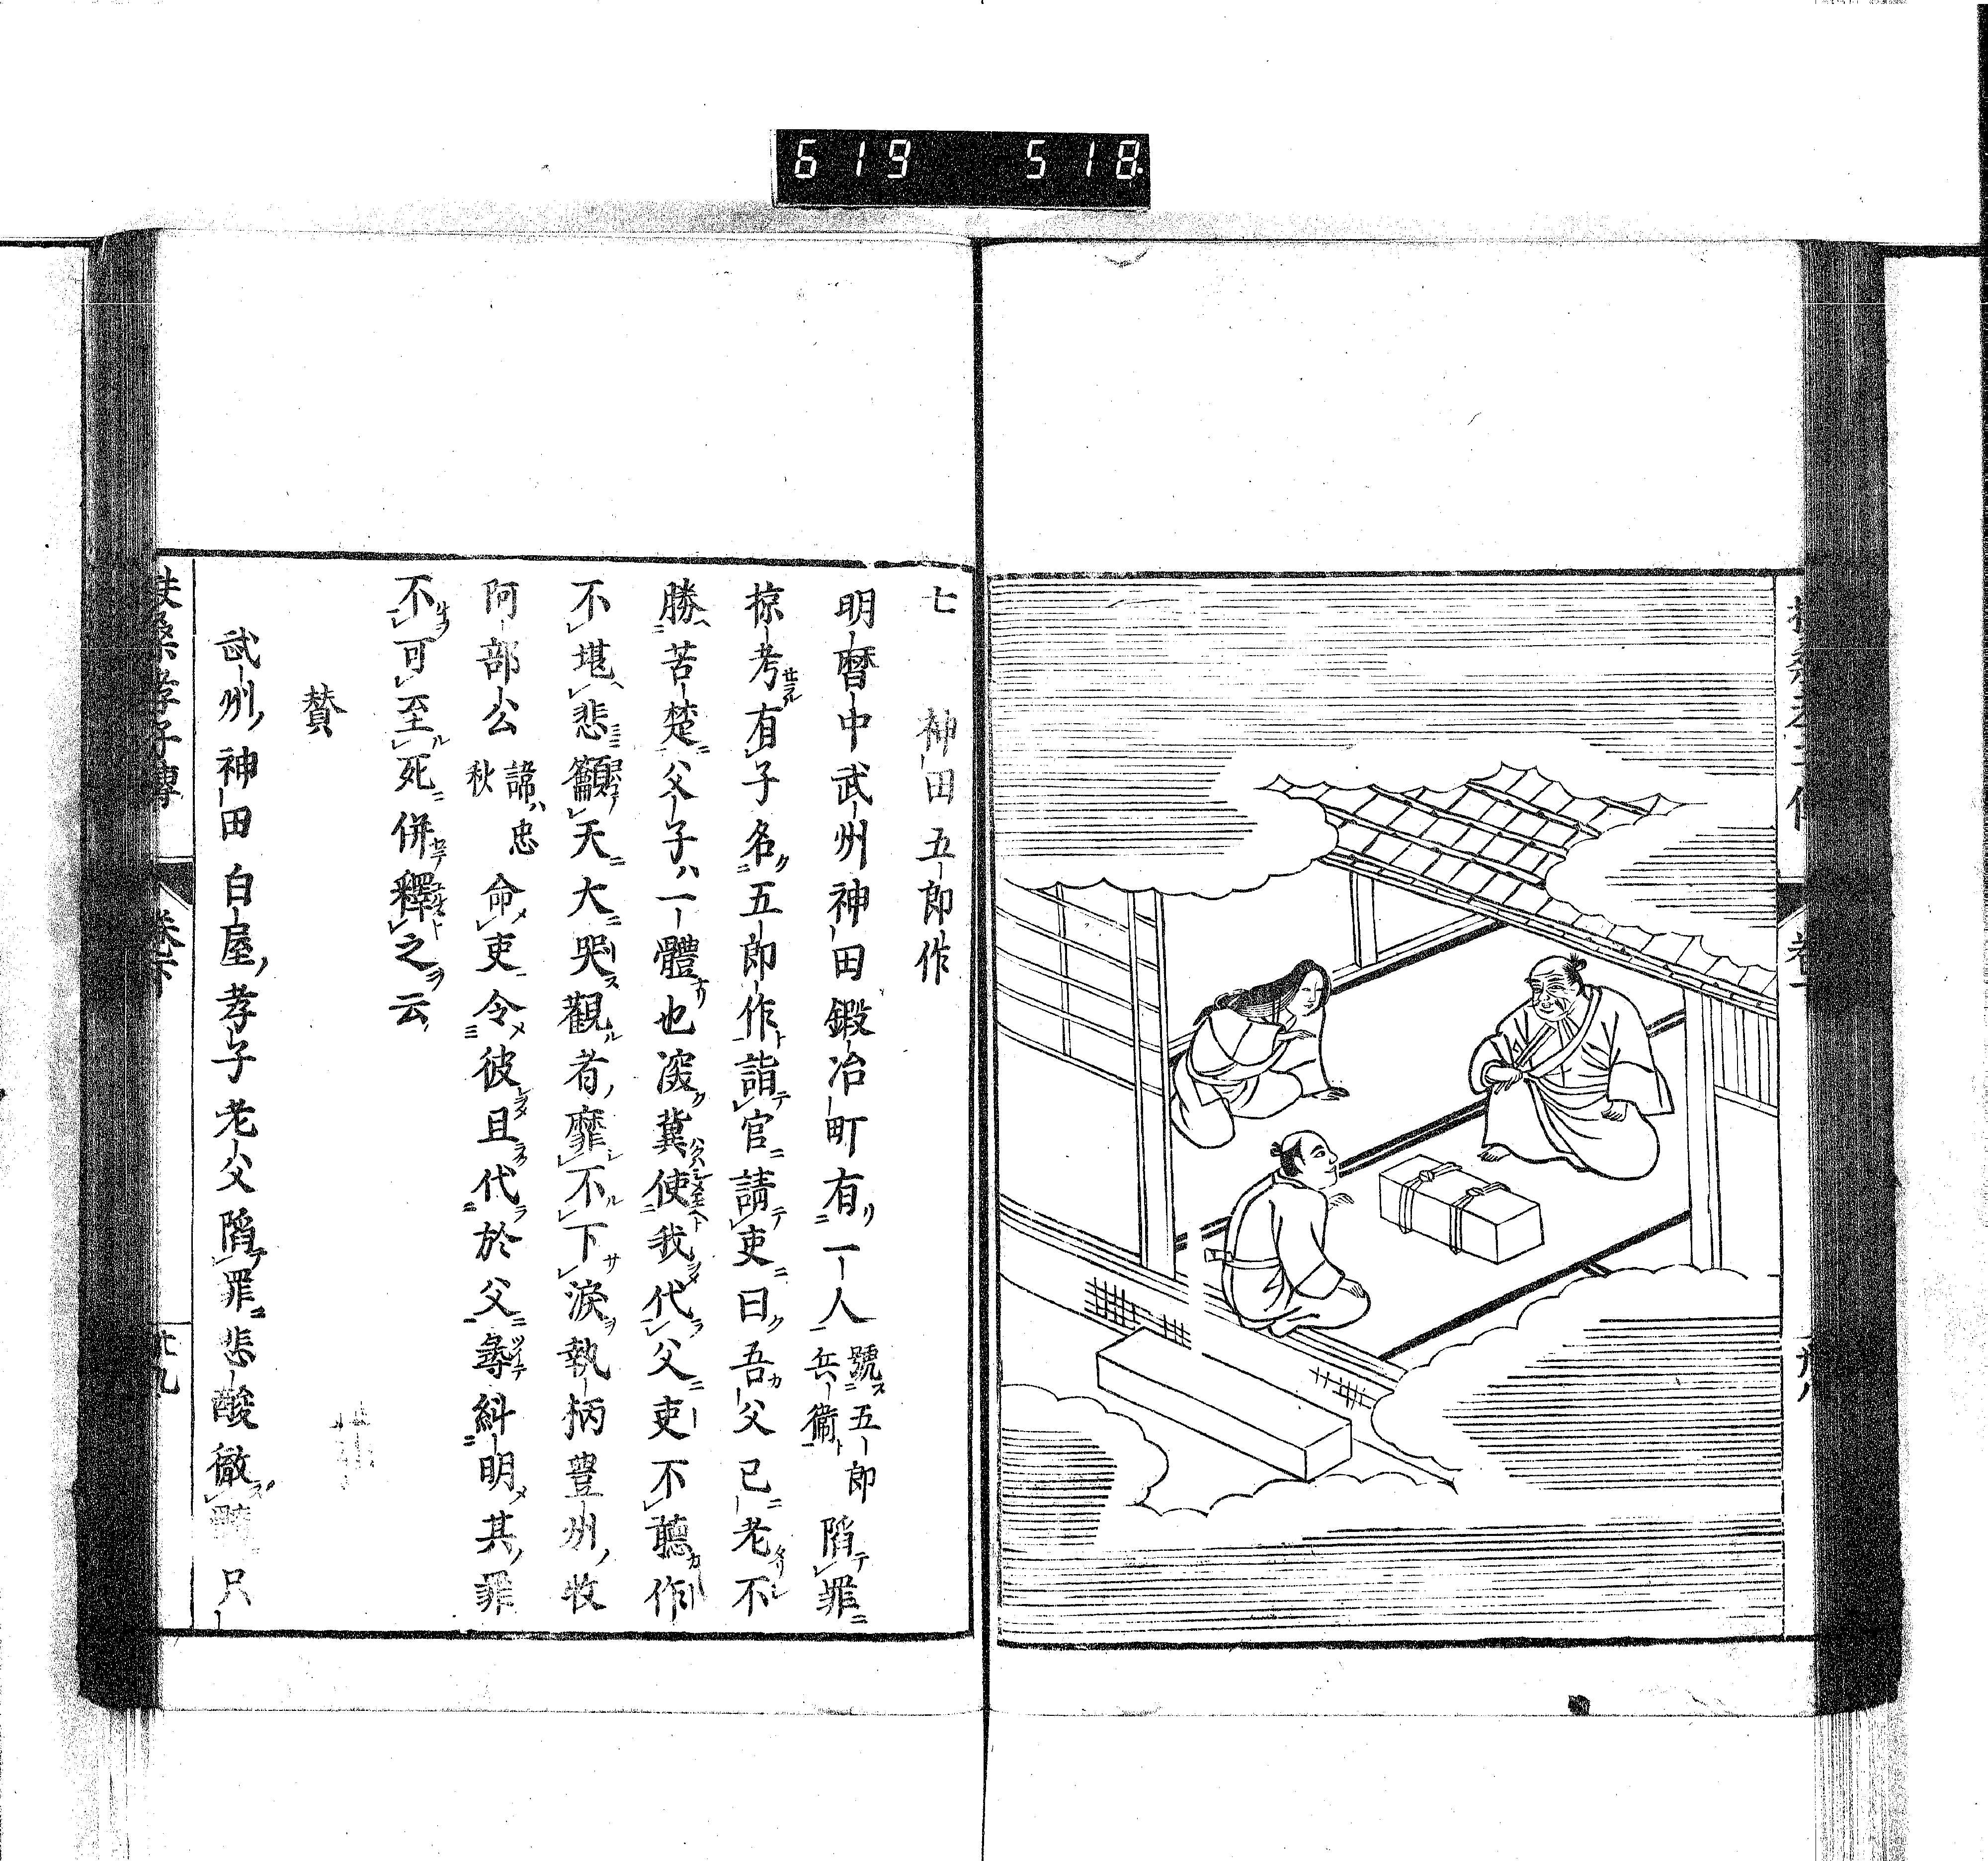 619 518
七 神田五郎作
明暦中武州神田鍛冶町有一人號五郎兵衞陷罪
掠考有子名五郎作詣官請吏曰吾父已老不
勝苦楚父子一體也深冀使我代父吏不聽作
不堪悲籲天大哭觀者靡不下淚執柄豊州牧
阿部公諱忠秋命吏令彼且代於父尋糾明其罪
不可至死併釋之云
賛
武州神田白屋孝子老父陷罪悲酸徹 只
扶桑孝子傳
卷下
廿九